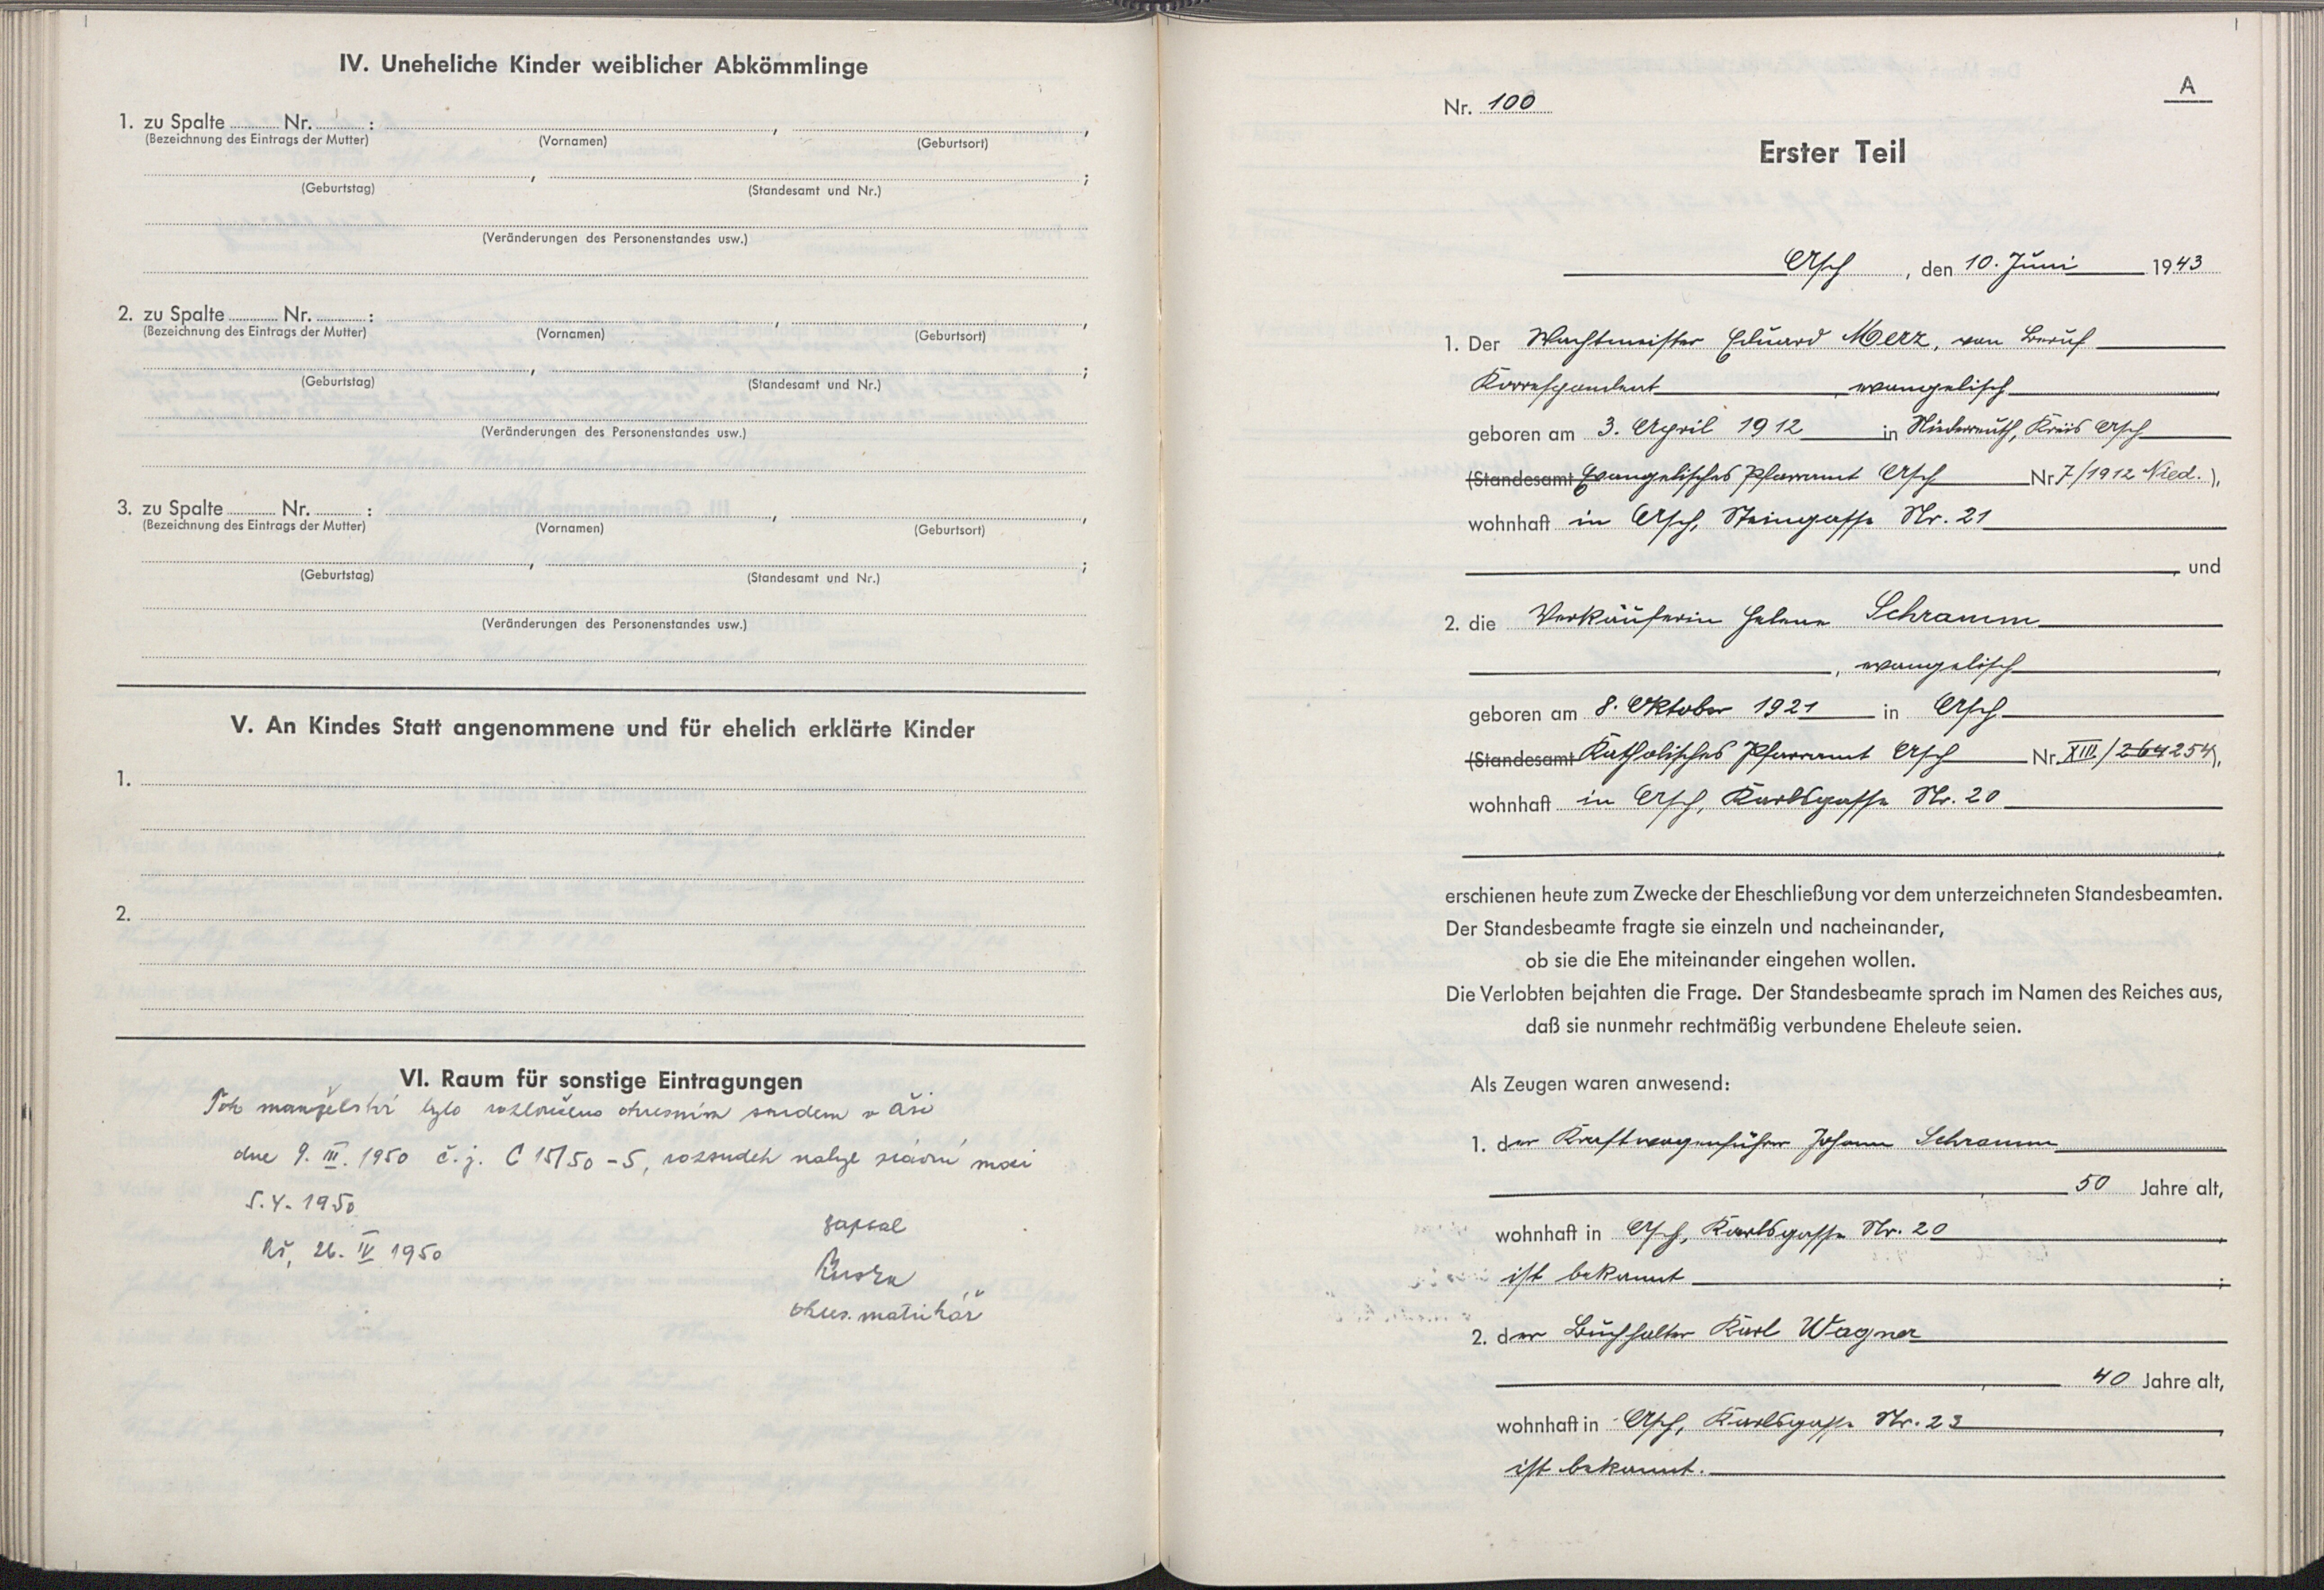 IV. Uneheliche Kinder weiblicher Abkömmlinge
1. zu Spalte Nr. : , ,
(Bezeichnung des Eintrags der Mutter) (Vornamen) (Geburtsort)
, ;
(Geburtstag) (Standesamt und Nr.)
(Veränderungen des Personenstandes usw.)
2. zu Spalte Nr. : , ,
(Bezeichnung des Eintrags der Mutter) (Vornamen) (Geburtsort)
, ;
(Geburtstag) (Standesamt und Nr.)
(Veränderungen des Personenstandes usw.)
3. zu Spalte Nr. : , ,
(Bezeichnung des Eintrags der Mutter) (Vornamen) (Geburtsort)
, ;
(Geburtstag) (Standesamt und Nr.)
(Veränderungen des Personenstandes usw.)
V. An Kindes Statt angenommene und für ehelich erklärte Kinder
1.
2.
VI. Raum für sonstige Eintragungen
Toto manželství bylo rozloučeno okresním soudem v Aši
dne 9. III. 1950 č. j. C 15/50 - 5, rozsudek nabyl právní moci
5. 4. 1950
Aš, 26. IV 1950
zapsal
okres. matrikář
A
Nr. 100
Erster Teil
Asch, den 10. Juni 1943
1. Der Wachtmeister Eduard Merz, von Beruf
Korrespondent, evangelisch
geboren am 3. April 1912 in Niederreuth, Kreis Asch
(Standesamt Evangelisches Pfarramt Asch Nr. 7/1912 Nied. ),
wohnhaft in Asch, Steingasse Nr. 21
, und
2. die Verkäuferin Helene Schramm
, evangelisch
geboren am 8. Oktober 1921 in Asch
(Standesamt Katholisches Pfarramt Asch Nr. XIII/264 254),
wohnhaft in Asch, Karlsgasse Nr. 20
erschienen heute zum Zwecke der Eheschließung vor dem unterzeichneten Standesbeamten.
Der Standesbeamte fragte sie einzeln und nacheinander,
ob sie die Ehe miteinander eingehen wollen.
Die Verlobten bejahten die Frage. Der Standesbeamte sprach im Namen des Reiches aus,
daß sie nunmehr rechtmäßig verbundene Eheleute seien.
Als Zeugen waren anwesend:
1. der Kraftwagenführer Johann Schramm
, 50 Jahre alt,
wohnhaft in Asch, Karlsgasse Nr. 20
ist bekannt ;
2. der Buchhalter Karl Wagner
, 40 Jahre alt,
wohnhaft in Asch, Karlsgasse Nr. 23
ist bekannt.